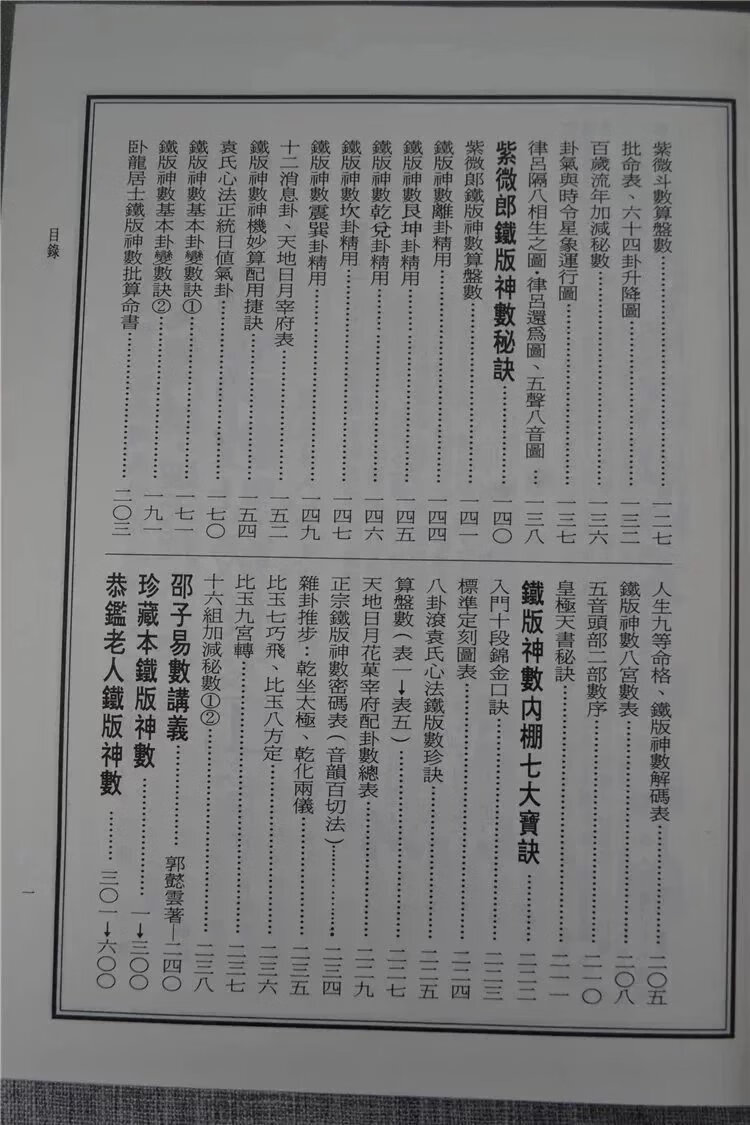 紫微斗數算盤數⋯⋯一二七
批命表、六十四卦升降圖⋯⋯一三二
百歲流年加減秘數⋯⋯一三六
卦氣與時令星象運行圖⋯⋯一三七
律呂隔八相生之圖·律呂還爲圖、五聲八音圖⋯一三八
紫微郎鐵版神數秘訣⋯⋯一四〇
紫微郎鐵版神數算盤數⋯⋯一四一
鐵版神數離卦精用⋯⋯一四四
鐵版神數艮坤卦精用⋯⋯一四五
鐵版神數乾兌卦精用⋯⋯一四六
鐵版神數坎卦精用⋯⋯一四七
鐵版神數震巽卦精用⋯⋯一四九
十二消息卦、天地日月宰府表⋯⋯一五二
鐵版神數神機妙算配用捷訣⋯⋯一五四
袁氏心法正統日值氣卦⋯⋯一七〇
鐵版神數基本卦變數訣①⋯⋯一七一
鐵版神數基本卦變數訣②⋯⋯一九一
卧龍居士鐵版神數批算命書⋯⋯二〇三
人生九等命格、鐵版神數解碼表⋯⋯二〇五
鐵版神數八宮數表⋯⋯二〇八
五音頭部二部數序⋯⋯二一〇
皇極天書秘訣⋯⋯二一一
鐵版神數內棚七大寶訣⋯⋯二二二
入門十段錦金口訣⋯⋯二二三
標準定刻圖表⋯⋯二二四
八卦滾袁氏心法鐵版數珍訣⋯⋯二二五
算盤數(表一→表五)⋯⋯二二七
天地日月花菓宰府配卦數總表⋯⋯二二九
正宗鐵版神數密碼表(音韻百切法)⋯⋯二三四
雜卦推步：乾坐太極、乾化兩儀⋯⋯二三五
比玉七巧飛、比玉八方定⋯⋯二三六
比玉九宮轉⋯⋯二三七
十六組加減秘數①②⋯⋯二三八
邵子易數講義⋯⋯郭懿雲著—二四〇
珍藏本鐵版神數⋯⋯一→三〇〇
恭鑑老人鐵版神數⋯⋯三〇一→六〇〇
目錄
一